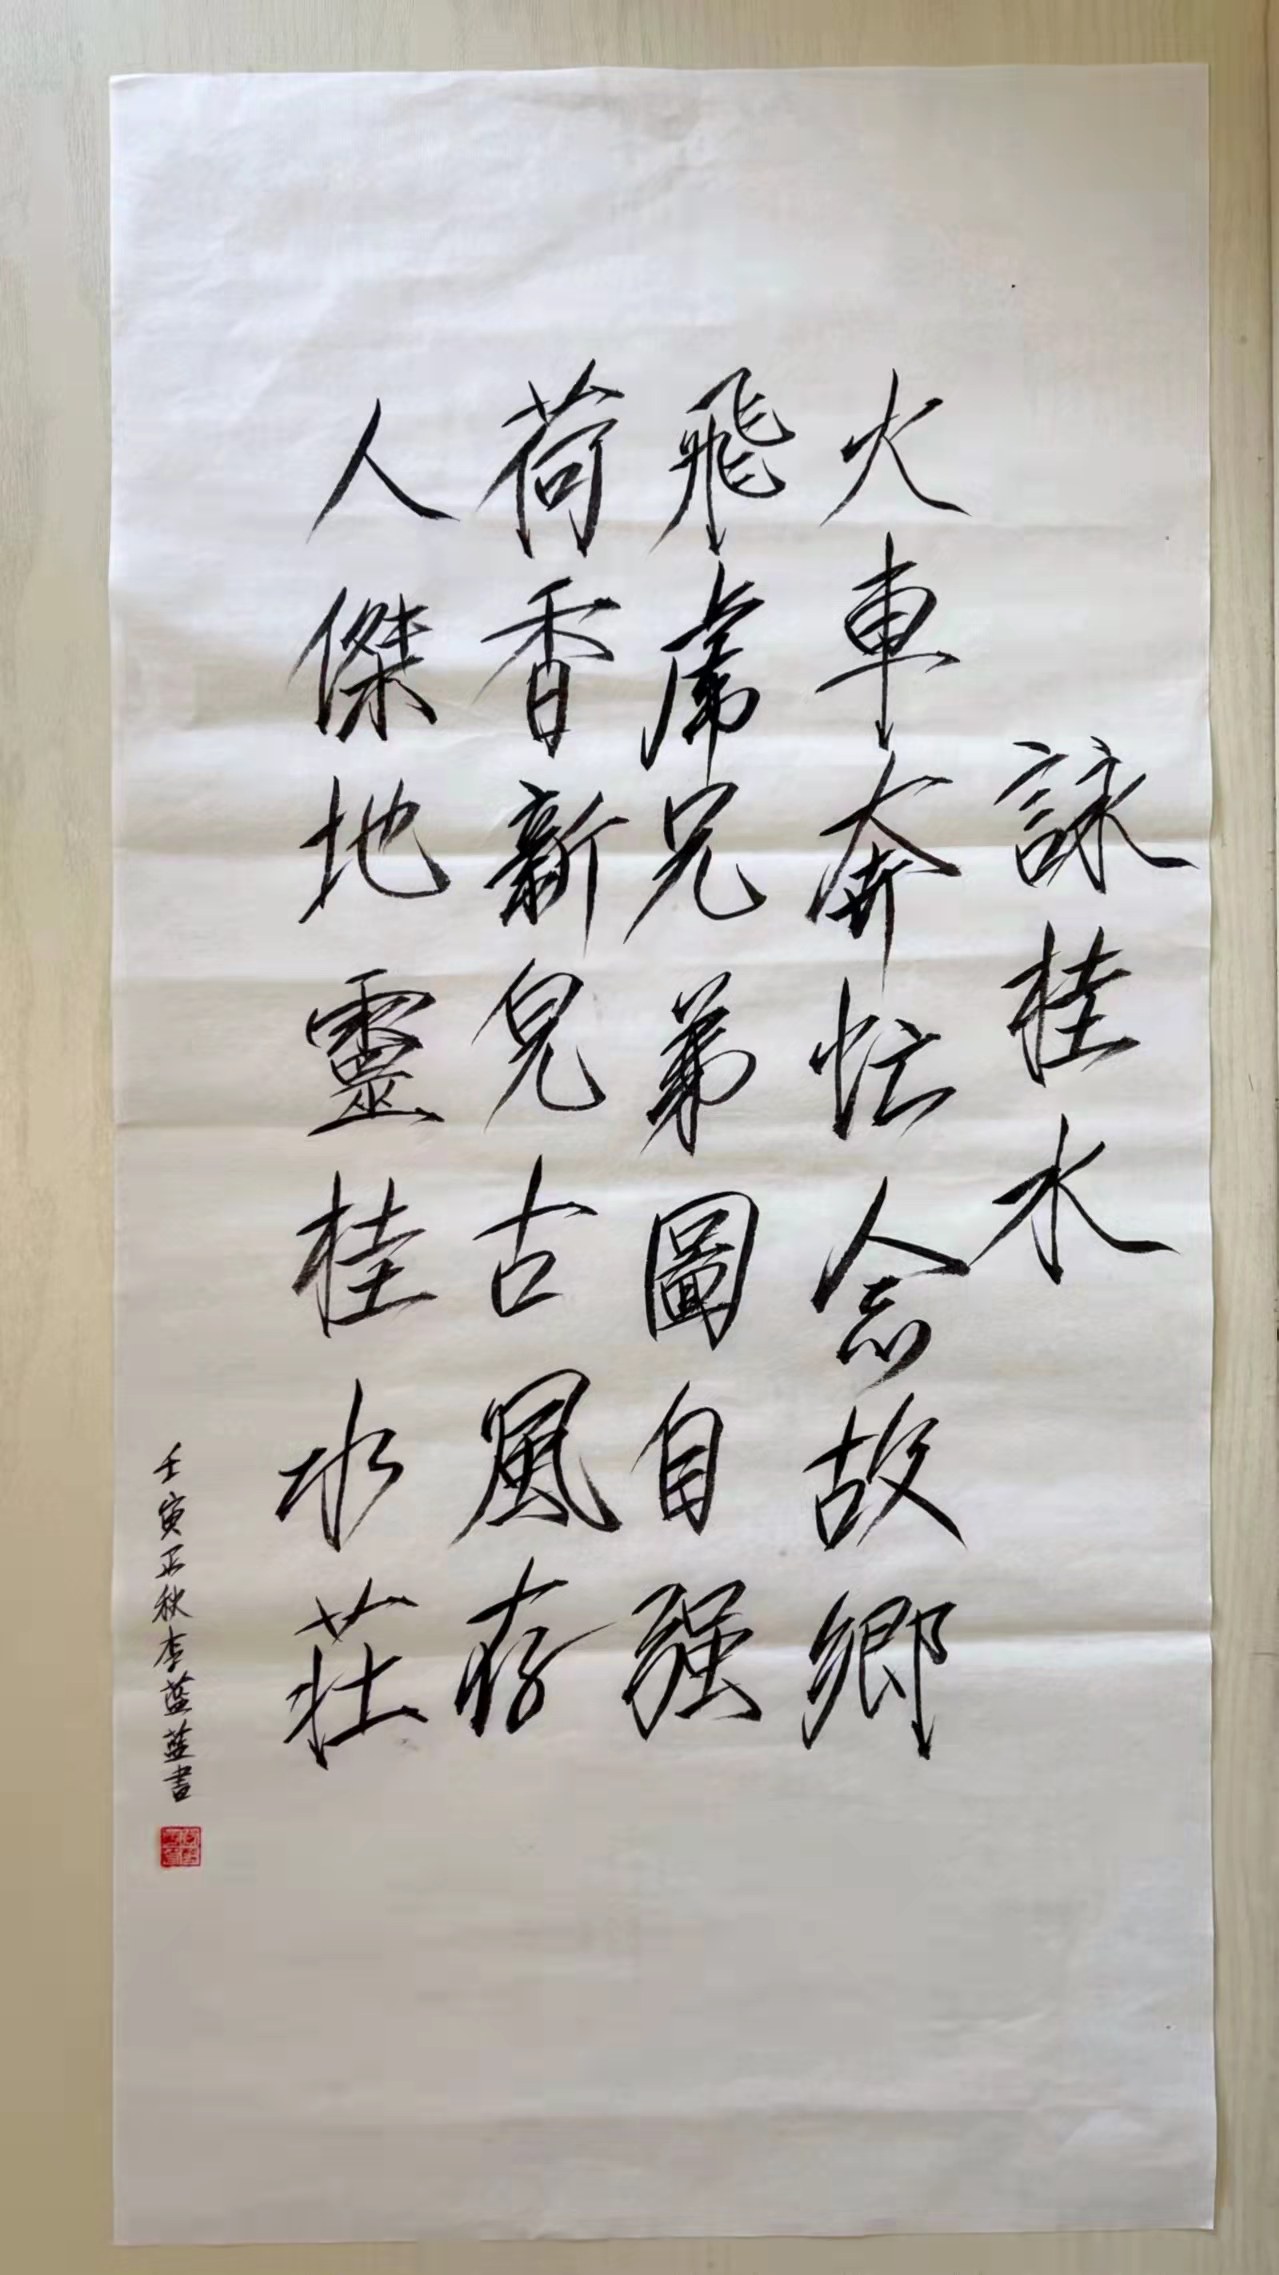 詠桂水
火車奔忙念故鄉
飛虎兄弟圖自强
荷香新兒古風存
人傑地靈桂水莊
壬寅正秋李蓝蓝書